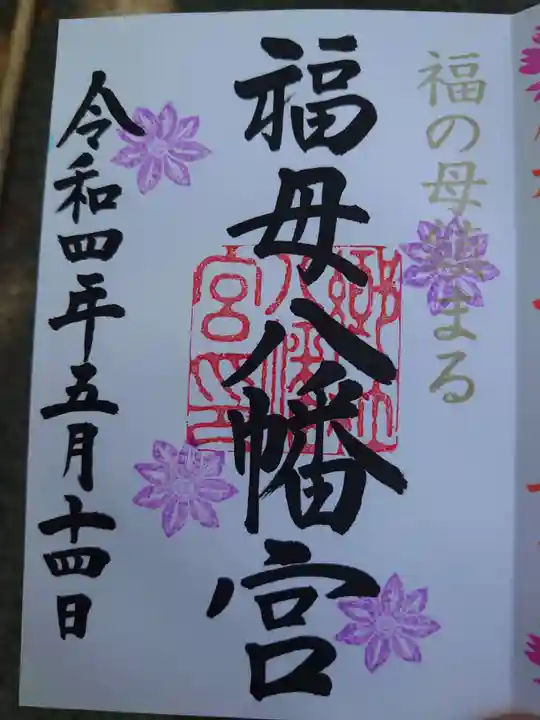 福の母鎮まる
福母八幡宮
郷社
八幡
宮印
令和四年五月十四日